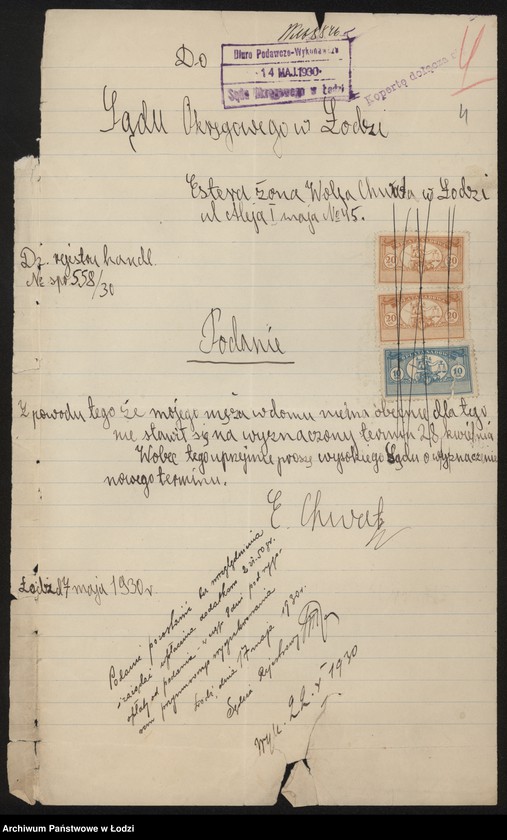 Do
Biuro Podawczo-Wykonawcze
14 MAJ.1930
Sądu Okręgowego w Łodzi
Kopertę dołącza
4
4
Sądu Okręgowego w Łodzi
Estera żona Wolfa Chwata w Łodzi
ul Aleja I maja No 45.
Dz. rejestru handl.
No spr 558/30
20 20
20 20
10 10
Podanie
Z powodu tego że mojego męża w domu niema obecnie dla tego
nie stawił się na wyznaczony termin 28 kwietnia
Wobec tego uprzejmie proszę wysokiego Sądu o wyznaczenie
nowego terminu.
E. Chwat
Łódź d 7 maja 1930 r
Podanie pozostawić bez uwzględnienia
i zarządzić wpłacenia dodatkowo 2 zł. 50 gr.
opłaty od podania w ciągu 7 dni pod rygo-
rem przymusowego wyegzekwowania
Łódź, dnia 17 maja 1930 r.
Sędzia Rejestrowy
Wyk. 22.V 1930
Archiwum Państwowe w Łodzi